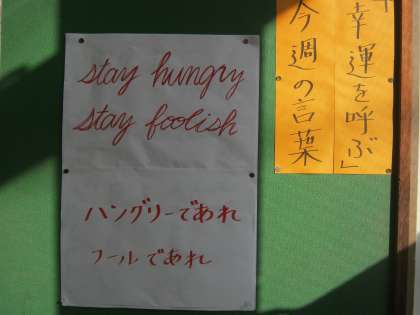 「幸運を呼ぶ」
今週の言葉
stay hungry
stay foolish
ハングリーであれ
フールであれ